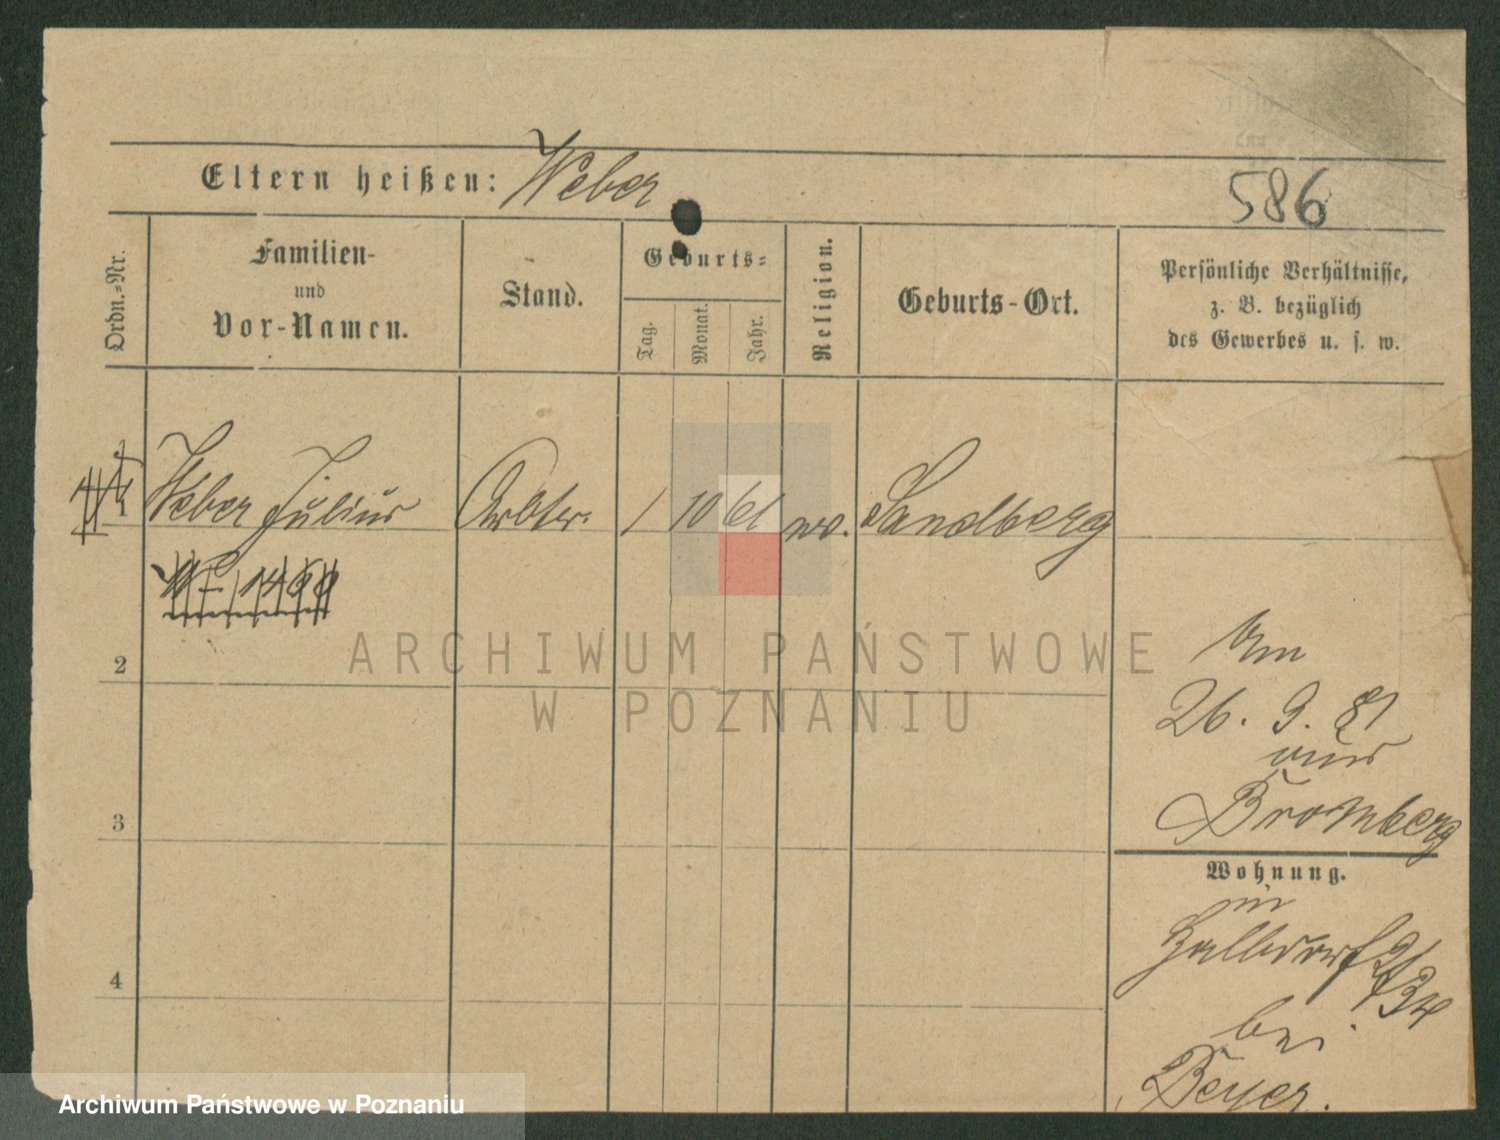 Eltern heißen: Weber
586
Ordn.-Nr.
Familien-
und
Vor-Namen.
Stand.
Geburts-
Tag.
Monat.
Jahr.
Religion.
Geburts-Ort.
Persönliche Verhältnisse,
z. B. bezüglich
des Gewerbes u. s. w.
1 Weber Julius Arbtr. 1 10 61 Sandberg
2
3
4
Am
26. 9. 81
aus
Bromberg
Wohnung.
in
Halbdorf
bei
Beyer.
ARCHIWUM PAŃSTWOWE
W POZNANIU
Archiwum Państwowe w Poznaniu